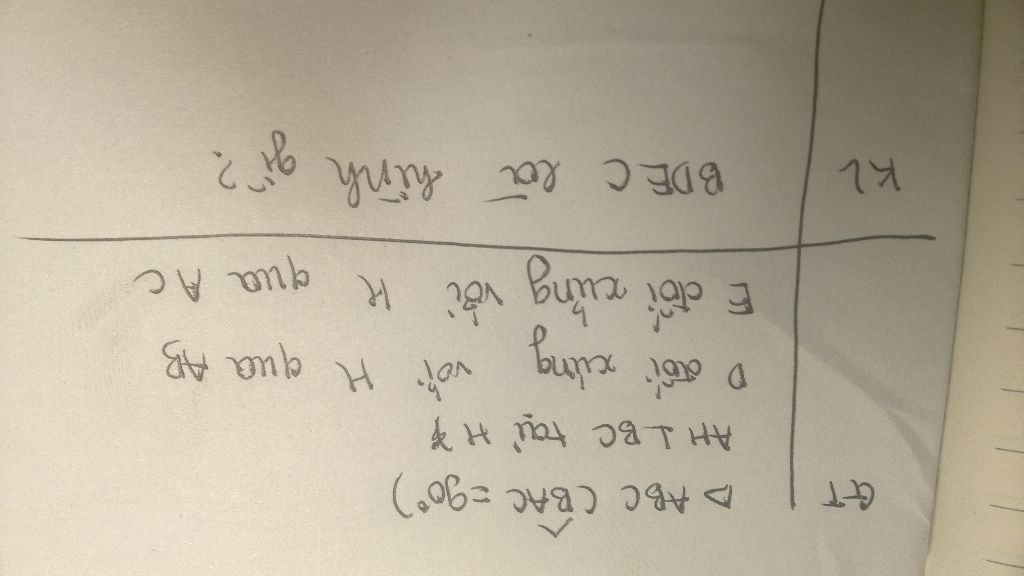 GT Δ ABC (BAC = 90°)
AH ⊥ BC tại H
D đối xứng với H qua AB
E đối xứng với H qua AC
KL BDEC là hình gì?